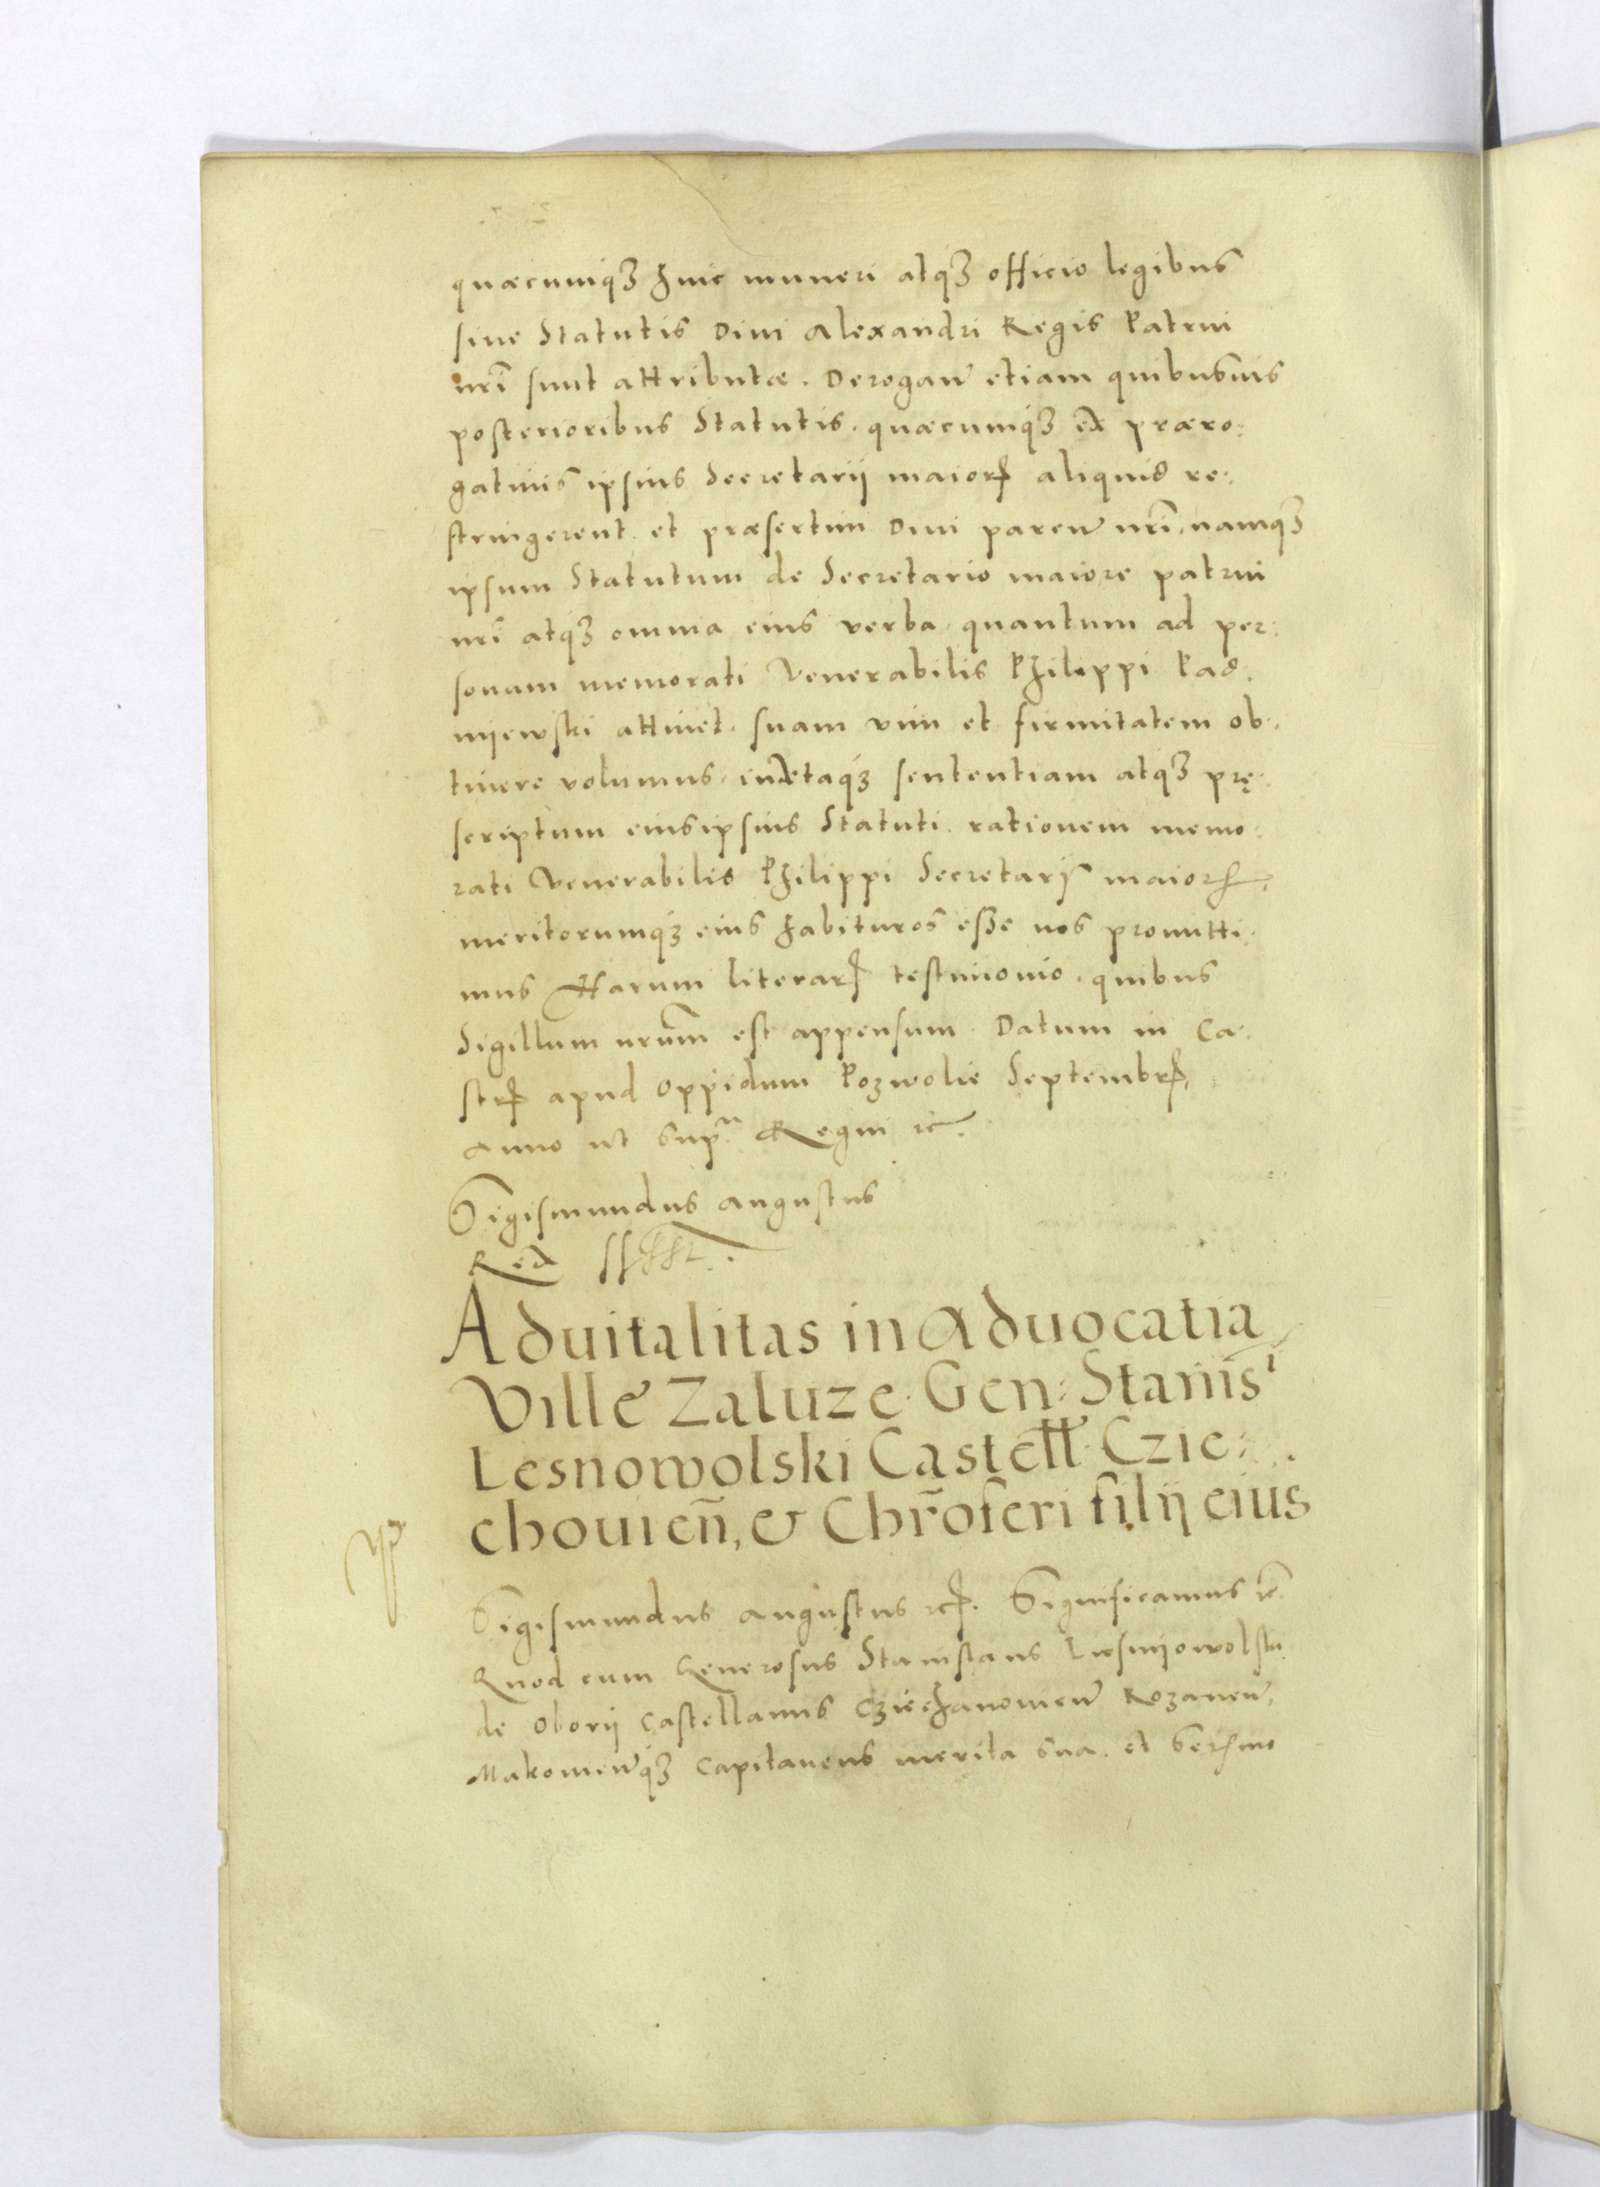 quæcumq3 huic muneri atq3 officio legibus
siue Statutis Diui Alexandri Regis Patrui
nr̃i sunt attributæ. Derogan̄ etiam quibusuis
posterioribus Statutis. quæcumq3 ex præro:
gatiuis ipsius Secretarii maior̨ aliquid re:
stringerent. et præsertim Diui paren̄ nr̃i, namq3
ipsum Statutum de Secretario maiore patrui
nr̃i atq3 omnia eius verba quantum ad per:
sonam memorati Venerabilis Philippi Pad.
niewski attinet. suam vim et firmitatem ob:
tinere volumus. iuxtaq3 sententiam atq3 prę:
scriptum eiusipsius Statuti. rationem memo:
rati Venerabilis Philippi Secretarij maior̨
meritorumq3 eius habituros esse nos promitti:
mus Harum literar̨ testimonio. quibus
Sigillum nrūm est appensum. Datum in Ca:
str̨ apud Oppidum Pozwolie Septembr̨,
Anno ut supᵃ. Regni ꝛc̃.
Sigismundus Augustus
Rex sssst.
Aduitalitas in Aduocatia
Ville Zaluze. Gen: Stanis̃ˡ
Lesnowolski Castell Czie:
chouien̄, & Chr̄oferi filij eius
Sigismundus Augustus ꝛc̨. Significamus ꝛc̃.
Quod cum Generosus Stanislaus Liesnijowolski
de Oborij Castellanus Cziechanouien̄ Rozanen̄,
Makouien̄q3 Capitaneus merita sua. et